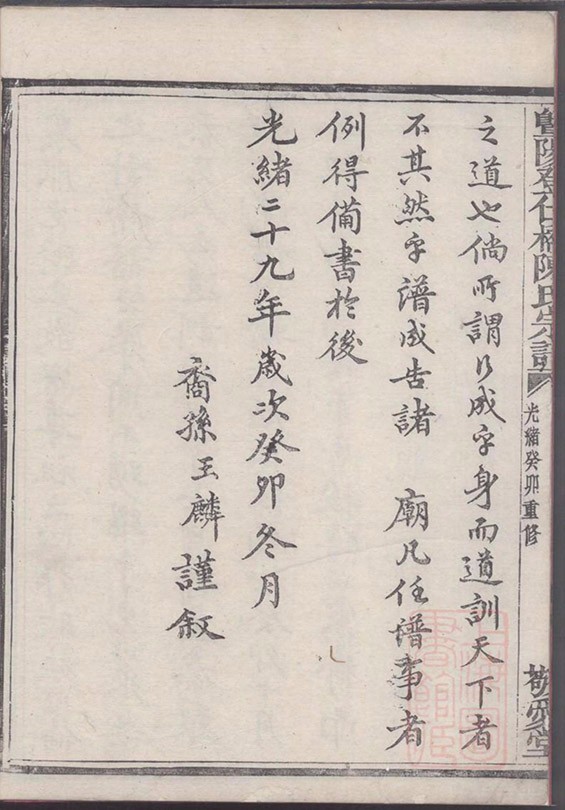 暨陽登仕橋陳氏宗譜 光緒癸卯重修 敬愛堂
之道也倘所謂行成乎身而道訓天下者
不其然乎譜成告諸 廟凡任譜事者
例得備書於後
光緒二十九年歲次癸卯冬月
裔孫玉麟謹叙